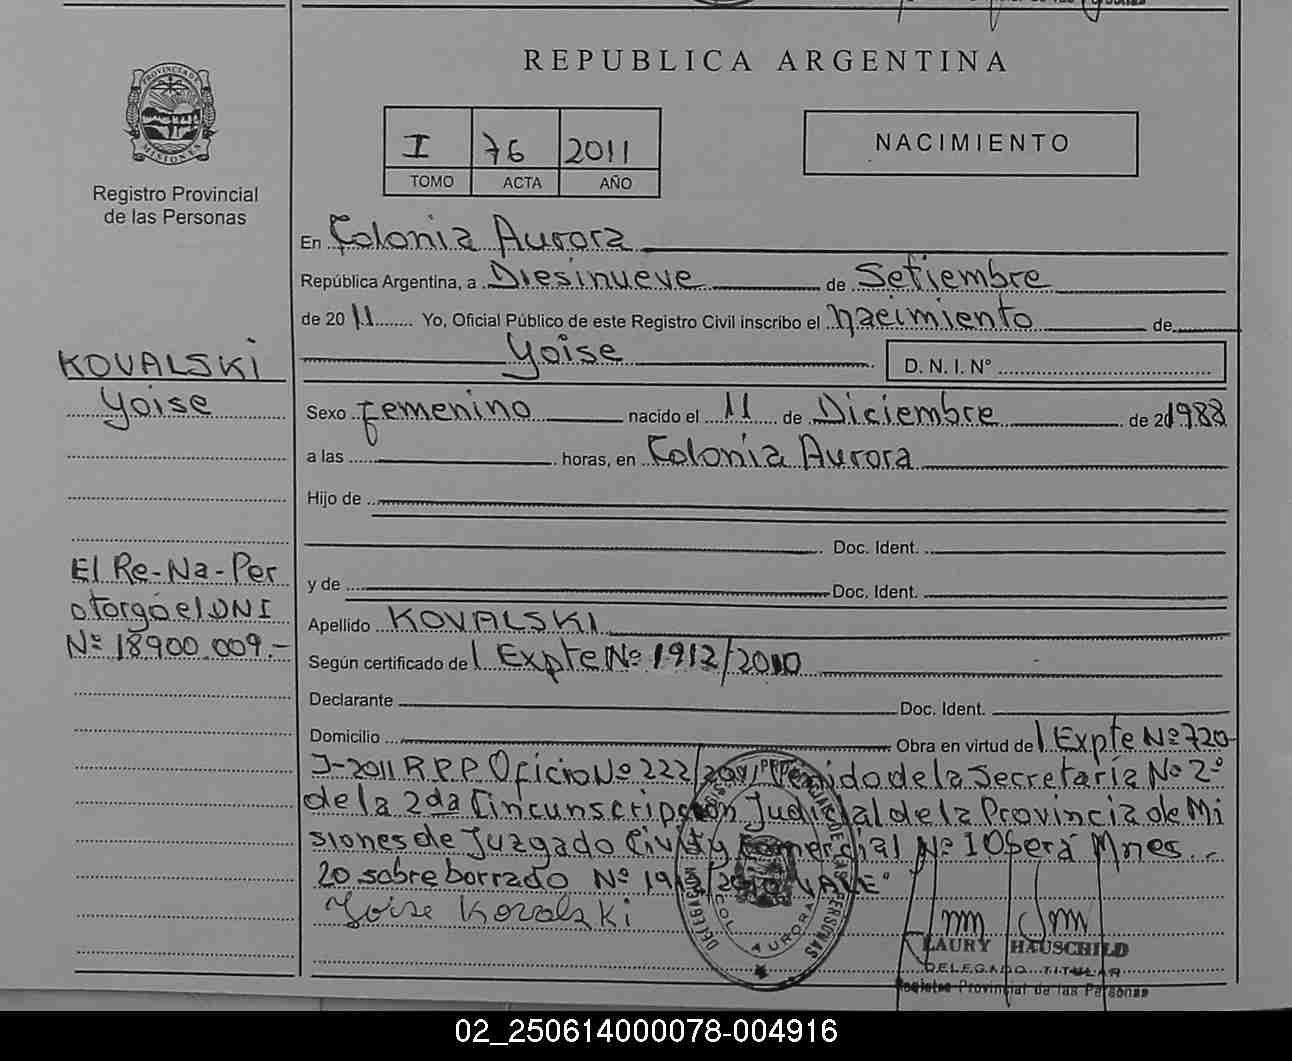 REPUBLICA ARGENTINA
PROVINCIA DE
MISIONES
Registro Provincial
de las Personas
I 76 2011
TOMO ACTA AÑO
NACIMIENTO
En Colonia Aurora
República Argentina, a Diesinueve de Setiembre
de 2011 Yo, Oficial Público de este Registro Civil inscribo el nacimiento de
Yoise D. N. I. Nº
KOVALSKI
Yoise
Sexo femenino nacido el 11 de Diciembre de 201988
a las horas, en Colonia Aurora
Hijo de
Doc. Ident.
y de Doc. Ident.
El Re-Na-Per
otorgó el DNI
Nº 18900.009.-
Apellido KOVALSKI
Según certificado de l Expte Nº 1912/2010
Declarante Doc. Ident.
Domicilio Obra en virtud del Expte Nº 720-
J-2011 R.P.P Oficio Nº 222/2011 remido de la Secretaría Nº 2º
de la 2da Cincunscripción Judicial de la Provincia de Mi
siones de Juzgado Civil y Comercial Nº 1 Oberá Mnes.-
20 sobre borrado Nº 1912/2010 "VALE"
Yoise Kovalski
DELEGACION
COL. AURORA
PROVINCIAL DE LAS PERSONAS
LAURY HAUSCHILD
DELEGADO TITULAR
Registro Provincial de las Personas
02_250614000078-004916